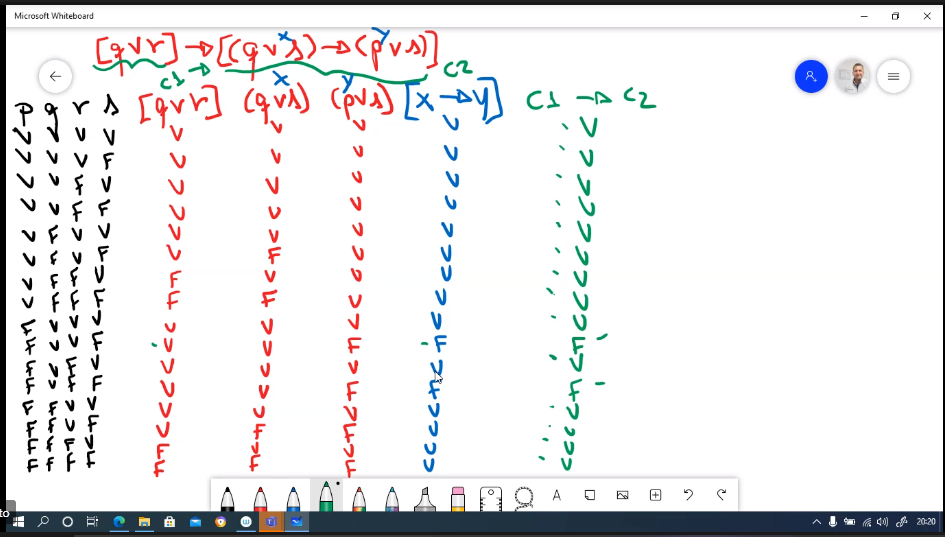 Microsoft Whiteboard
[q v r] → [(q v s) → (p v s)]
x y
C1 → C2
x y
p q r s [q v r] (q v s) (p v s) [x → y] C1 → C2
V V V V V V V V V
V V V F V V V V V
V V F V V V V V V
V V F F V V V V V
V F V V V V V V V
V F V F V F V V V
V F F V F V V V V
V F F F F F V V V
F V V V V V V V V
F V V F V V F F F
F V F V V V V V V
F V F F V V F F F
F F V V V V V V V
F F V F V F F V V
F F F V F V V V V
F F F F F F F V V
A
to
20:20